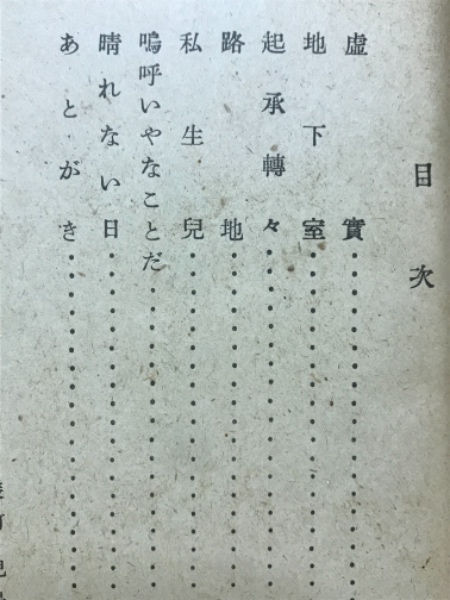 目次
虛實
地下室
起承轉々
路地
私生兒
嗚呼いやなことだ
晴れない日
あとがき